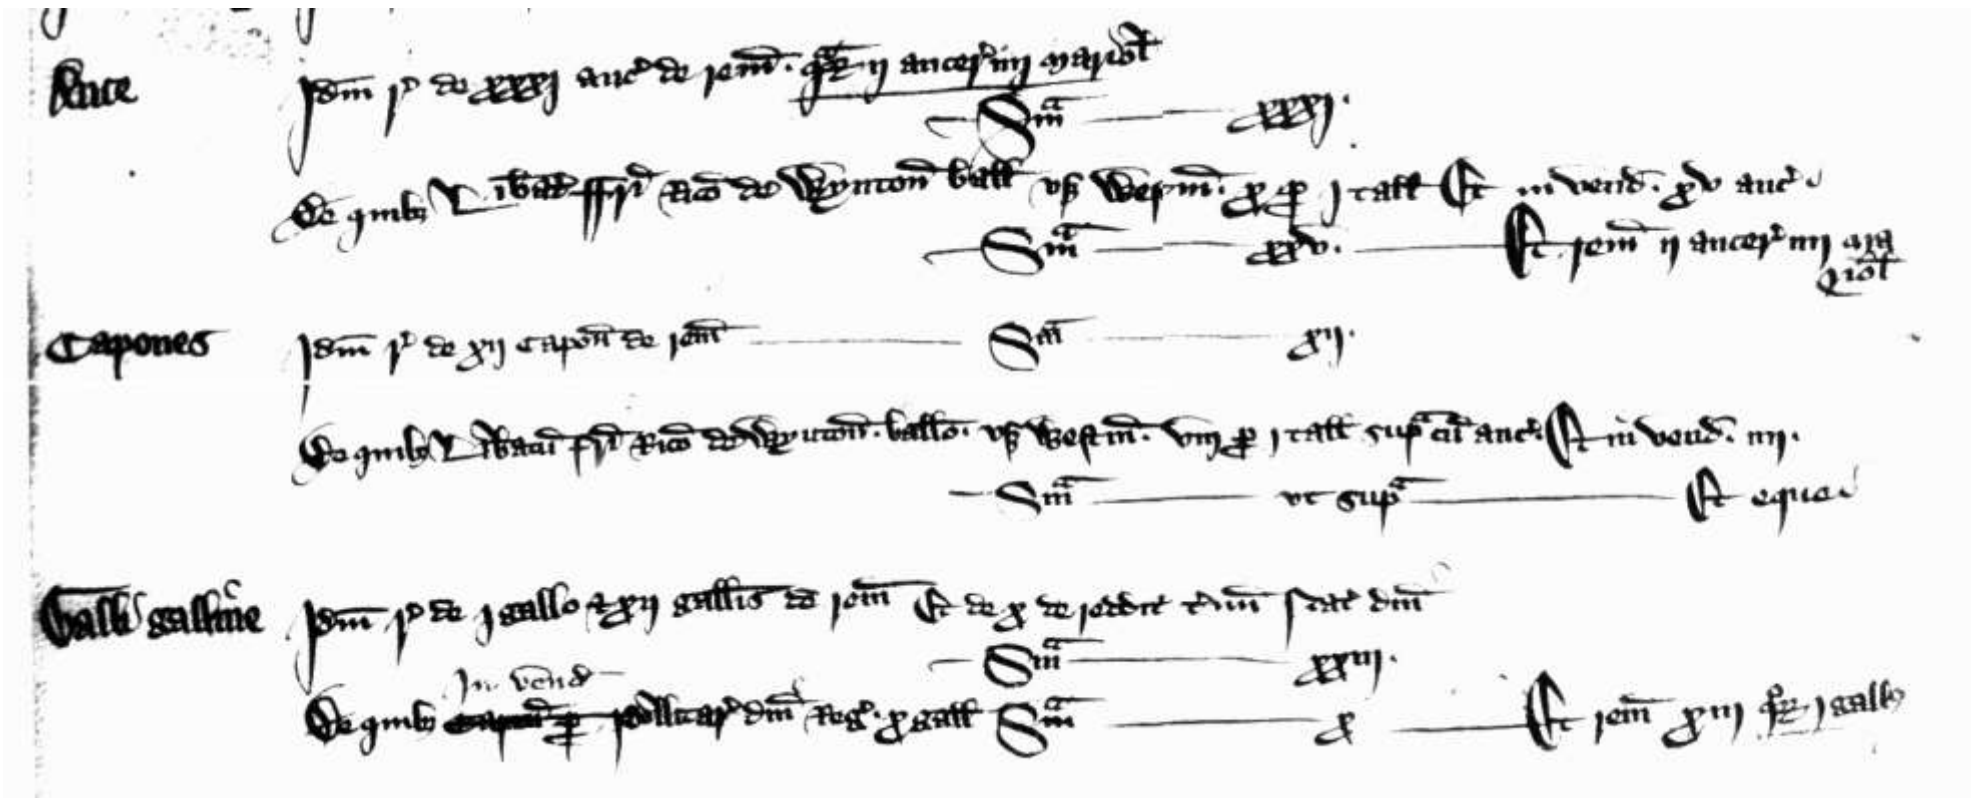 Auce
Idm r de xxxj auc de rem. qrz ij ancer iiij mariol
Sma xxxj.
De quibz Libat ffri Rico de Wynton ball vs Westm. x p j tall Et in vend. xv auc
Sma xxv. Et rem ij ancer iiij ma
riol
Capones Idm r de xij capon de rem Sma xij.
De quibz Libatur fri Rico de Wynton. ballo. vs Westm. viij p j tall supa cu auc. Et in vend. iiij.
Sma vt supa Et eque
Galli galline Idm r de j gallo & xij gallis de rem Et de x de reddit dm
Sma xxiij.
In vend
De quibz dm Reg. x gall Sma x Et rem xiij qrz j gallus